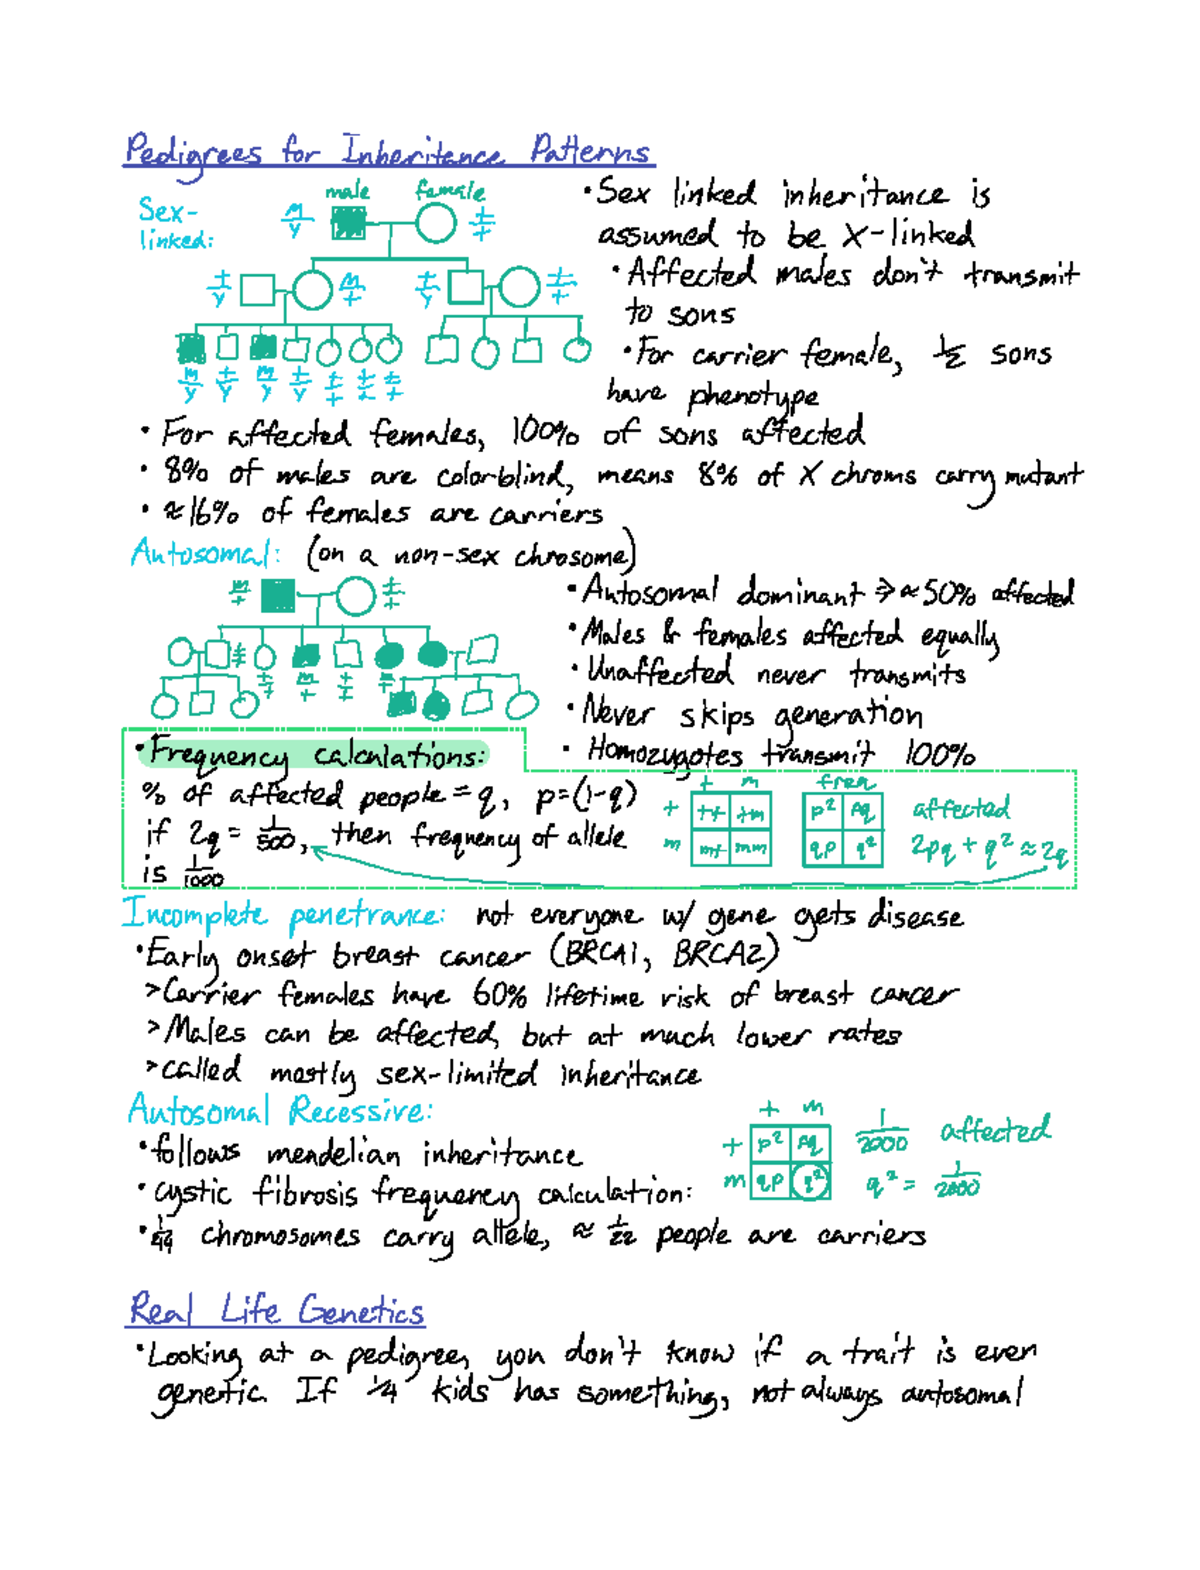 Pedigrees for Inheritance Patterns
male female
Sex-
linked:
m/y +/+
+/y m/+ +/y +/+
m/y +/y m/y +/y +/+ +/+
• Sex linked inheritance is
assumed to be X-linked
• Affected males don't transmit
to sons
• For carrier female, 1/2 sons
have phenotype
• For affected females, 100% of sons affected
• 8% of males are color-blind, means 8% of X chroms carry mutant
• ≈16% of females are carriers
Autosomal: (on a non-sex chrosome)
m/+ +/+
+/+
+/+ m/+ +/+ m/+
• Autosomal dominant ⇒ ≈50% affected
• Males & females affected equally
• Unaffected never transmits
• Never skips generation
• Homozygotes transmit 100%
• Frequency calculations:
% of affected people = q, p=(1-q)
if 2q = 1/500, then frequency of allele
is 1/1000
+ m
+ ++ +m
m m+ mm
freq
p² pq
qp q²
affected
2pq + q² ≈ 2q
Incomplete penetrance: not everyone w/ gene gets disease
• Early onset breast cancer (BRCA1, BRCA2)
> Carrier females have 60% lifetime risk of breast cancer
> Males can be affected, but at much lower rates
> called mostly sex-limited inheritance
Autosomal Recessive:
• follows mendelian inheritance
• cystic fibrosis frequency calculation:
• 1/44 chromosomes carry allele, ≈ 1/22 people are carriers
+ m
+ p² pq
m qp q²
1/2000 affected
q² = 1/2000
Real Life Genetics
• Looking at a pedigree, you don't know if a trait is even
genetic. If 1/4 kids has something, not always autosomal